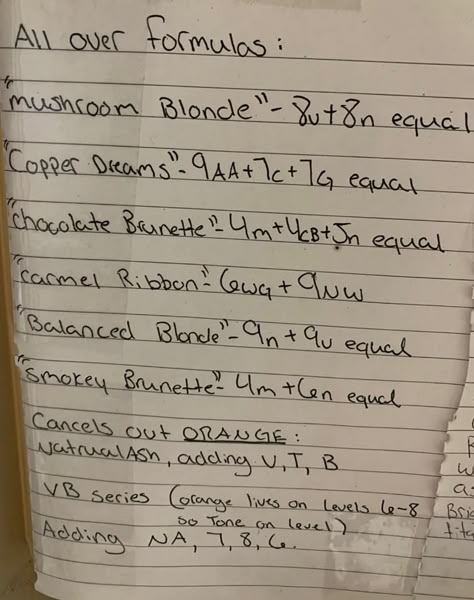 All over formulas:
"mushroom Blonde" - 8v + 8n equal
"Copper Dreams" - 9AA + 7c + 7G equal
"chocolate Brunette" - 4m + 4CB + 5n equal
"carmel Ribbon" - 6WG + 9NW
"Balanced Blonde" - 9n + 9v equal
"smokey Brunette" - 4m + 6n equal
Cancels out ORANGE:
NatrualAsh, adding V, T, B
VB series (orange lives on levels 6-8
so Tone on level)
Adding NA, 7, 8, 6.
Bri